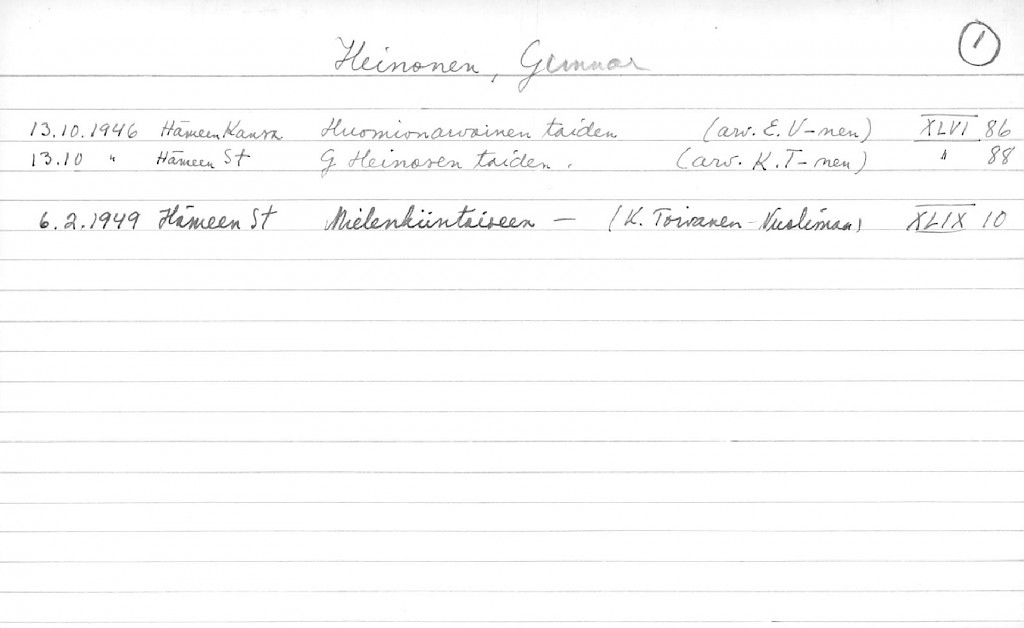 Heinonen, Gunnar 1
13.10.1946 Hämeen Kansa Huomionarvoinen taiden (arv. E. V-nen) XLVI 86
13.10 " Hämeen St G Heinosen taiden. (arv. K. T-nen) " 88
6.2.1949 Hämeen St Mielenkiintoiseen — (K. Toivanen-Vuolimaa) XLIX 10